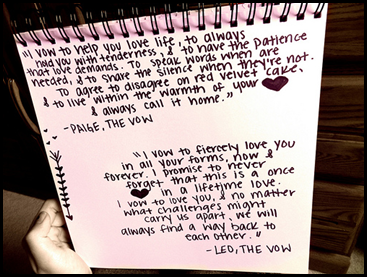 "I vow to help you love life, to always
hold you with tenderness, & to have the patience
that love demands. To speak words when are
needed, & to share the silence when they're not.
To agree to disagree on red velvet cake,
& to live within the warmth of your
& always call it home."
-PAIGE, THE VOW
"I vow to fiercely love you
in all your forms, now &
forever. I promise to never
forget that this is a once
in a lifetime love.
I vow to love you, & no matter
what challenges might
carry us apart, we will
always find a way back to
each other."
- LEO, THE VOW